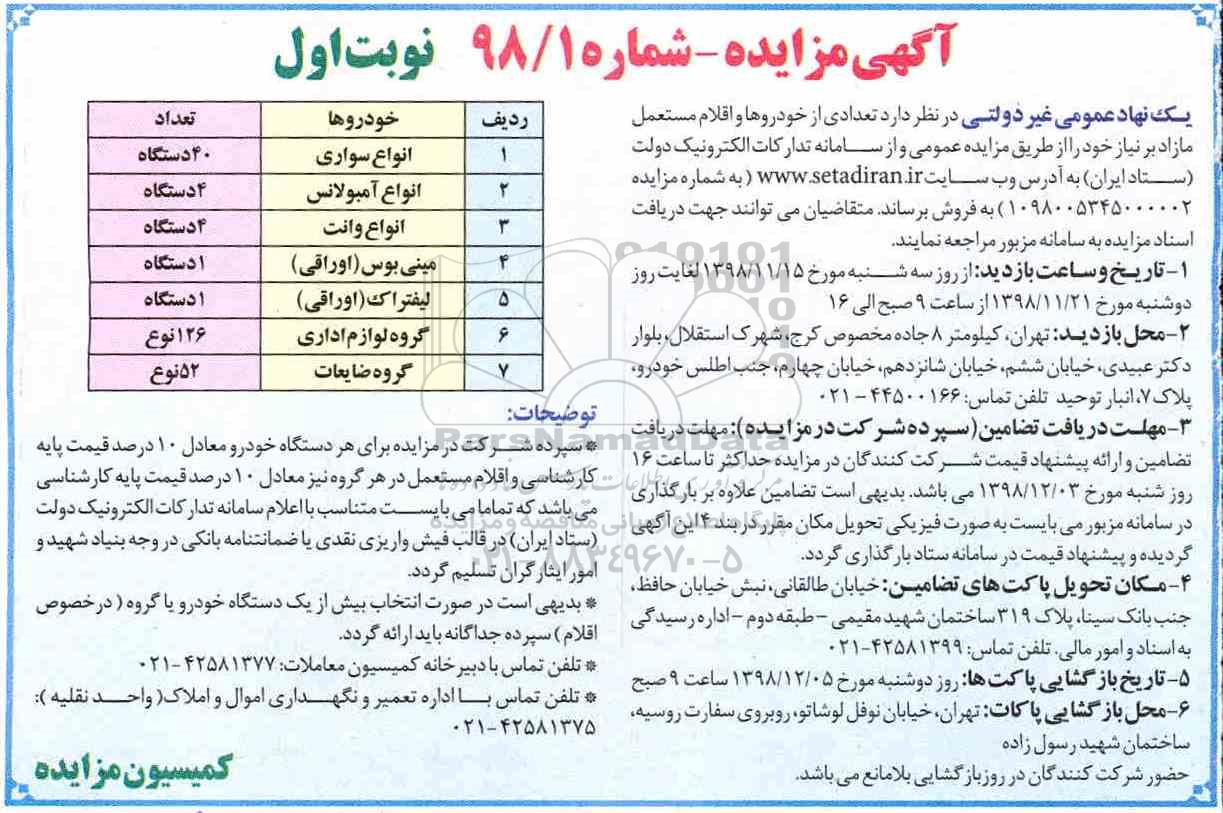 آگهی مزایده - شماره ۹۸/۱ نوبت اول
یک نهاد عمومی غیر دولتی در نظر دارد تعدادی از خودروها و اقلام مستعمل
مازاد بر نیاز خود را از طریق مزایده عمومی و از سامانه تدارکات الکترونیک دولت
(ستاد ایران) به آدرس وب سایت www.setadiran.ir ( به شماره مزایده
۱۰۹۸۰۰۵۳۴۵۰۰۰۰۰۲ ) به فروش برساند. متقاضیان می توانند جهت دریافت
اسناد مزایده به سامانه مزبور مراجعه نمایند.
۱- تاریخ و ساعت بازدید: از روز سه شنبه مورخ ۱۳۹۸/۱۱/۱۵ لغایت روز
دوشنبه مورخ ۱۳۹۸/۱۱/۲۱ از ساعت ۹ صبح الی ۱۶
۲- محل بازدید: تهران، کیلومتر ۸ جاده مخصوص کرج، شهرک استقلال، بلوار
دکتر عبیدی، خیابان ششم، خیابان شانزدهم، خیابان چهارم، جنب اطلس خودرو،
پلاک ۷، انبار توحید تلفن تماس: ۴۴۵۰۰۱۶۶ - ۰۲۱
۳- مهلت دریافت تضامین (سپرده شرکت در مزایده): مهلت دریافت
تضامین و ارائه پیشنهاد قیمت شرکت کنندگان در مزایده حداکثر تا ساعت ۱۶
روز شنبه مورخ ۱۳۹۸/۱۲/۰۳ می باشد. بدیهی است تضامین علاوه بر بارگذاری
در سامانه مزبور می بایست به صورت فیزیکی تحویل مکان مقرر در بند ۴ این آگهی
گردیده و پیشنهاد قیمت در سامانه ستاد بارگذاری گردد.
۴- مکان تحویل پاکت های تضامین: خیابان طالقانی، نبش خیابان حافظ،
جنب بانک سینا، پلاک ۳۱۹ ساختمان شهید مقیمی - طبقه دوم - اداره رسیدگی
به اسناد و امور مالی. تلفن تماس: ۴۲۵۸۱۳۹۹-۰۲۱
۵- تاریخ بازگشایی پاکت ها: روز دوشنبه مورخ ۱۳۹۸/۱۲/۰۵ ساعت ۹ صبح
۶- محل بازگشایی پاکات: تهران، خیابان نوفل لوشاتو، روبروی سفارت روسیه،
ساختمان شهید رسول زاده
حضور شرکت کنندگان در روز بازگشایی بلامانع می باشد.
ردیف خودروها تعداد
۱ انواع سواری ۴۰ دستگاه
۲ انواع آمبولانس ۴ دستگاه
۳ انواع وانت ۴ دستگاه
۴ مینی بوس (اوراقی) ۱ دستگاه
۵ لیفتراک (اوراقی) ۱ دستگاه
۶ گروه لوازم اداری ۱۲۶ نوع
۷ گروه ضایعات ۵۲ نوع
توضیحات:
* سپرده شرکت در مزایده برای هر دستگاه خودرو معادل ۱۰ درصد قیمت پایه
کارشناسی و اقلام مستعمل در هر گروه نیز معادل ۱۰ درصد قیمت پایه کارشناسی
می باشد که تماما می بایست متناسب با اعلام سامانه تدارکات الکترونیک دولت
(ستاد ایران) در قالب فیش واریزی نقدی یا ضمانتنامه بانکی در وجه بنیاد شهید و
امور ایثارگران تسلیم گردد.
* بدیهی است در صورت انتخاب بیش از یک دستگاه خودرو یا گروه ( درخصوص
اقلام ) سپرده جداگانه باید ارائه گردد.
* تلفن تماس با دبیرخانه کمیسیون معاملات: ۴۲۵۸۱۳۷۷-۰۲۱
* تلفن تماس با اداره تعمیر و نگهداری اموال و املاک( واحد نقلیه ):
۴۲۵۸۱۳۷۵-۰۲۱
کمیسیون مزایده
ParsNamadData
پایگاه اطلاع رسانی مناقصه و مزایده
۰۲۱-۸۸۳۴۹۶۷۰-۵